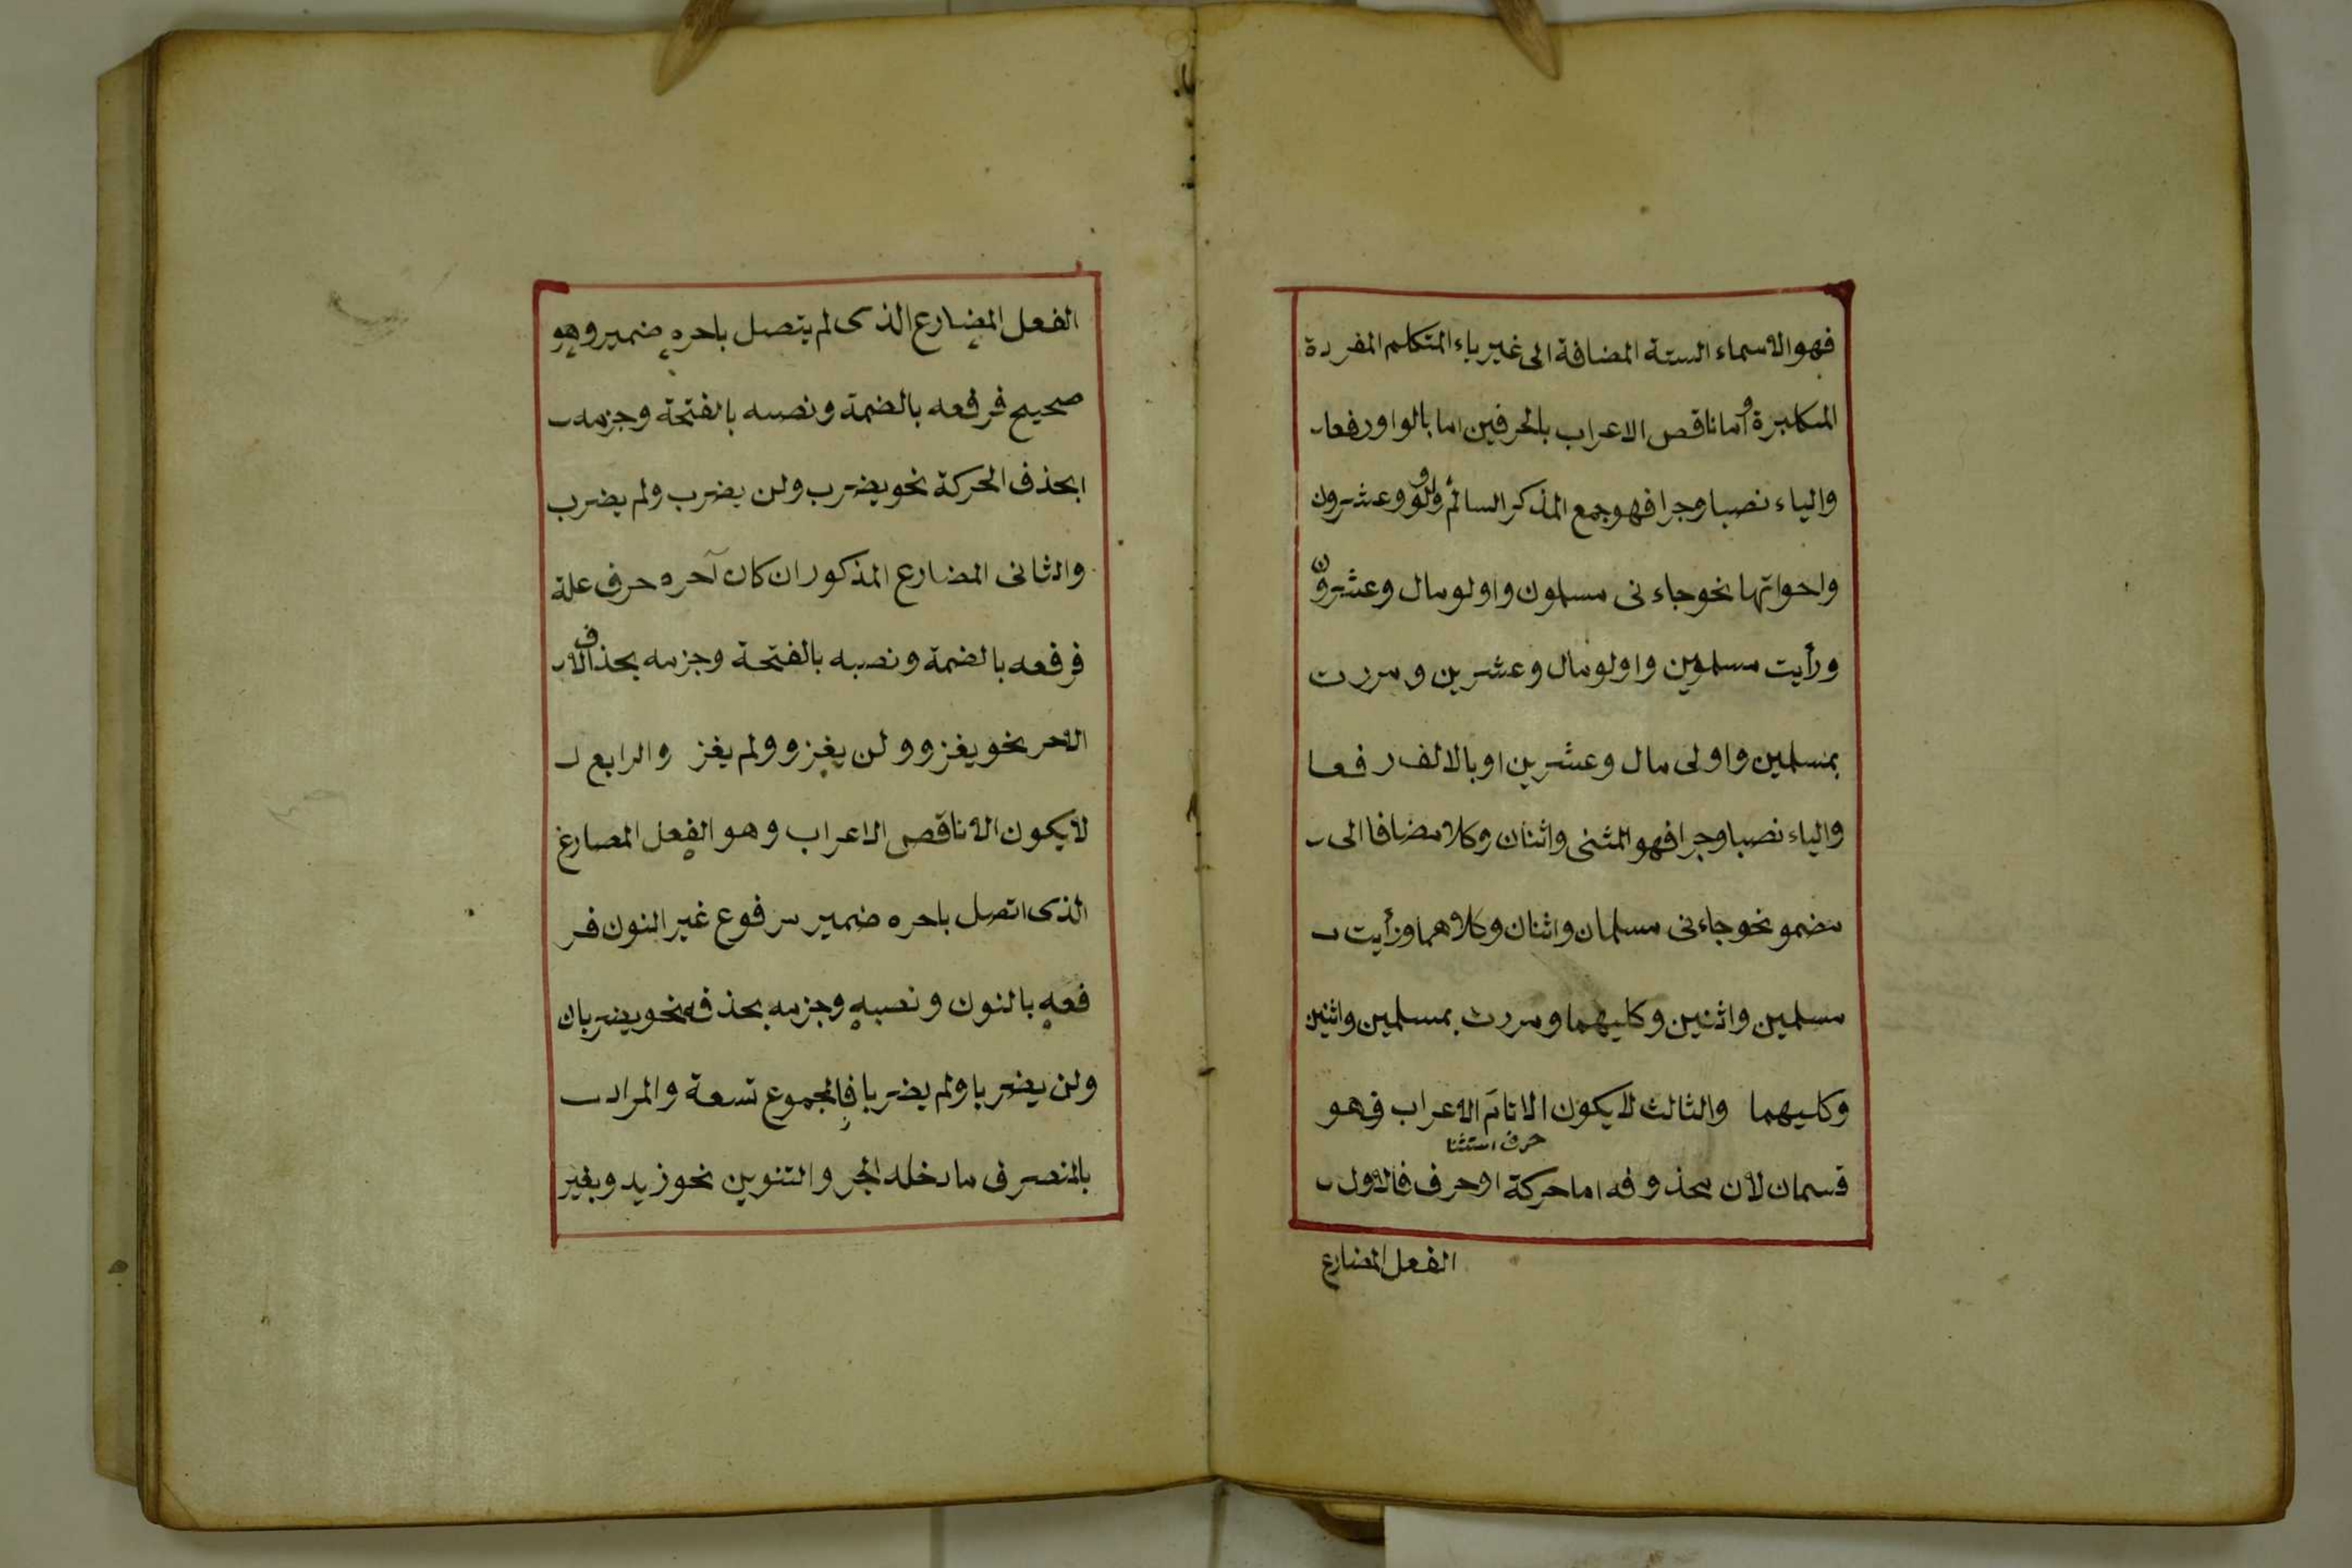 فهو الاسماء الستة المضافة الى غير ياء المتكلم المفردة
المكبرة واما ناقص الاعراب بالحرفين اما بالواو رفعا
والياء نصبا وجرا فهو جمع المذكر السالم واولو وعشرون
واحواتها نحو جاءنى مسلمون واولو مال وعشرون
ورأيت مسلمين واولو مال وعشرين ومررت
بمسلمين واولى مال وعشرين او بالالف رفعا
والياء نصبا وجرا فهو المثنى واثنان وكلا مضافا الى
مضمو نحو جاءنى مسلمان واثنان وكلاهما ورأيت
مسلمين واثنين وكليهما ومررت بمسلمين واثنين
وكليهما والثالث لايكون الا تام الاعراب فهو
حرف استثنا
قسمان لان محذوفه اما حركة او حرف فالاول
الفعل المضارع
الفعل المضارع الذى لم يتصل باحره ضمير وهو
صحيح فرفعه بالضمة ونصبه بالفتحة وجزمه
ابحذف الحركة نحو يضرب ولن يضرب ولم يضرب
والثانى المضارع المذكور ان كان آحره حرف علة
فرفعه بالضمة ونصبه بالفتحة وجزمه بحذف الا
الاحر نحو يغزو ولن يغزو ولم يغز والرابع ل
لايكون الا ناقص الاعراب وهو الفعل المصارع
الذى اتصل باحره ضمير مرفوع غير النون فر
فعه بالنون ونصبه وجزمه بحذفه نحو يضربان
ولن يضربا ولم يضربا فالمجموع تسعة والمراد
بالمنصرف ما دخله الجر والتنوين نحو زيد وبغير